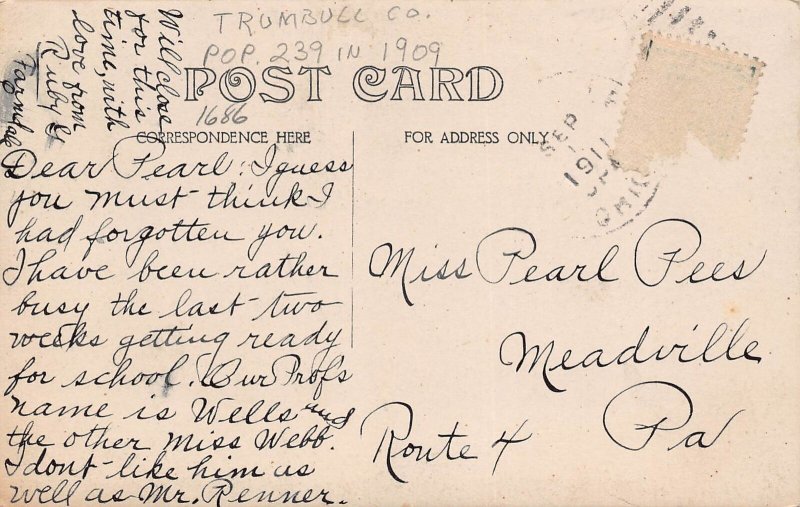 TRUMBULL CO.
POP. 239 IN 1909
POST CARD
1686
CORRESPONDENCE HERE
FOR ADDRESS ONLY
SEP
1911
OHIO
Dear Pearl: I guess
you must think I
had forgotten you.
I have been rather
busy the last two
weeks getting ready
for school. Our Prof's
name is Wells and
the other Miss Webb.
I dont like him as
well as Mr. Renner.
Will close
for this
time, with
love from
Ruby G
Farmdale
Miss Pearl Pees
Meadville
Route 4 Pa